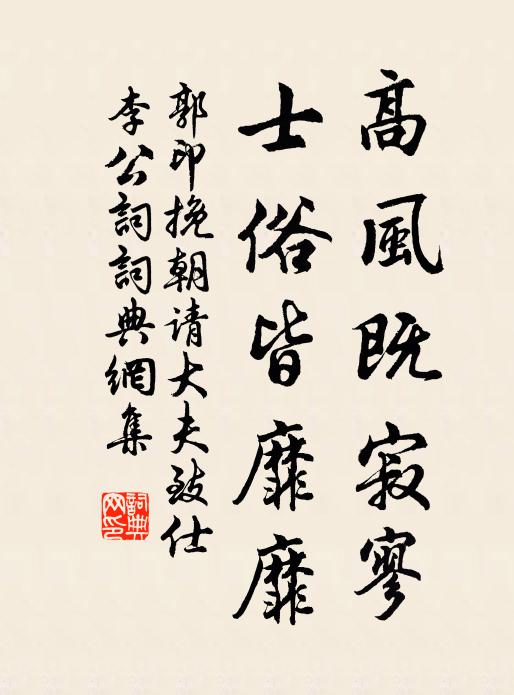 高風既寂寥
士俗皆靡靡
郭印挽朝請大夫致仕
李公詞詞典網集
詞典
网印